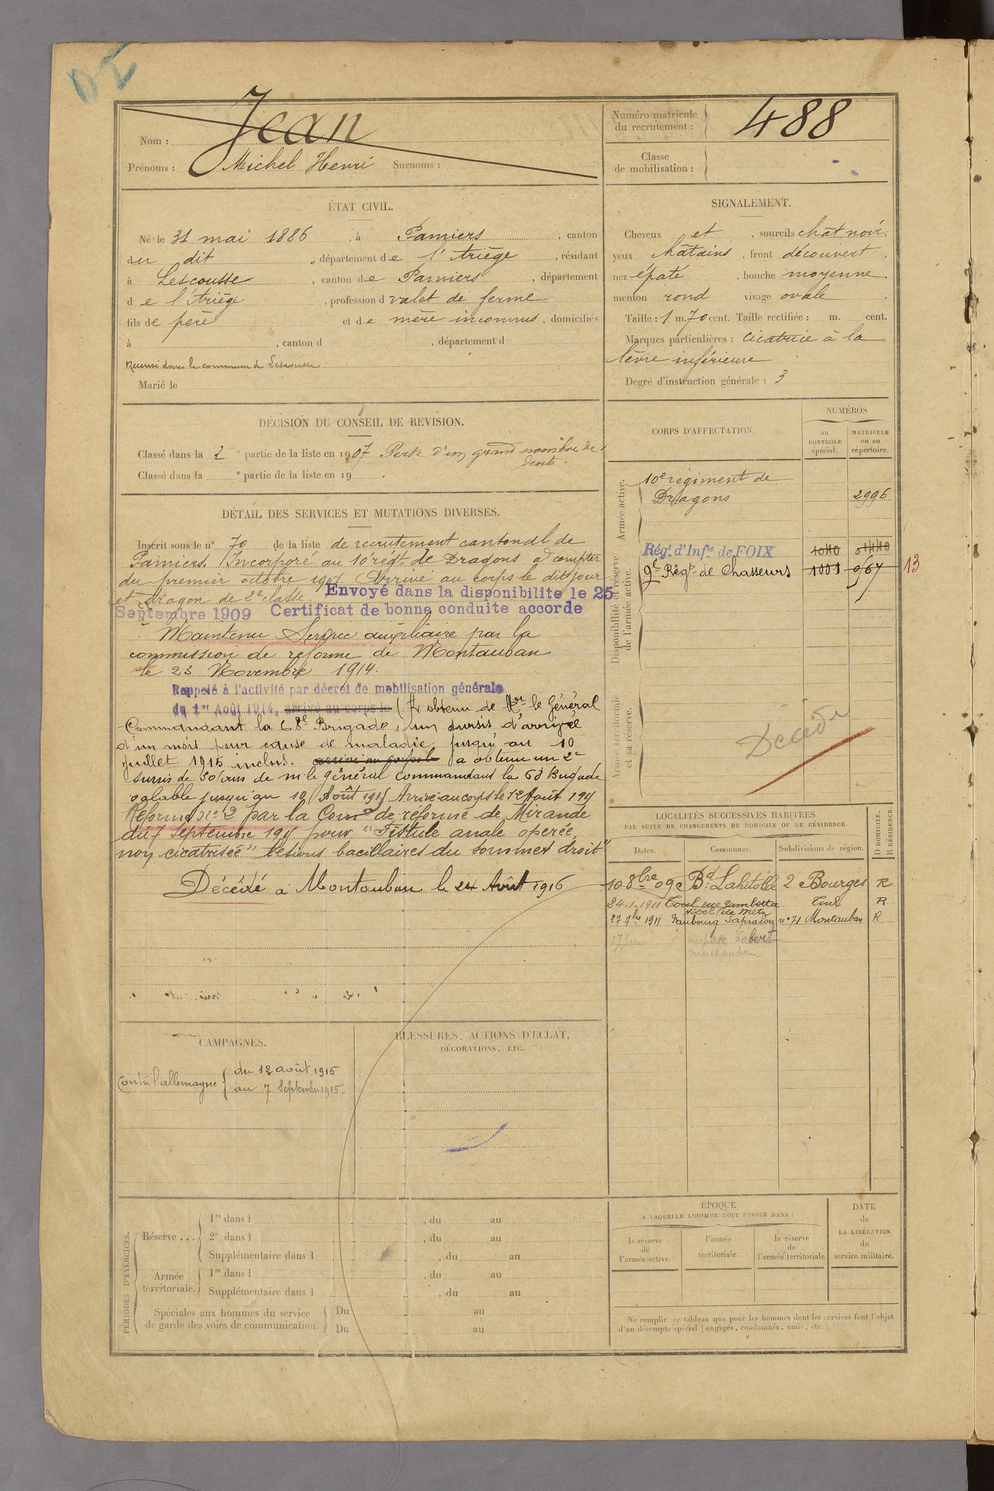 Jean
Nom :
Prénoms : Michel Henri Surnoms :
Numéro matricule du recrutement : 488
Classe de mobilisation :
ÉTAT CIVIL.
Né le 31 mai 1886, à Pamiers, canton
du dit, département de l'Ariège, résidant
à Lescousse, canton de Pamiers, département
de l'Ariège, profession d valet de ferme
fils de père et de mère inconnus, domiciliés
à , canton d , département d
Recensé dans la commune de Lescousse
Marié le
SIGNALEMENT.
Cheveux et , sourcils chat noir
yeux chatains , front découvert
nez épaté , bouche moyenne
menton rond visage ovale
Taille : 1 m. 70 cent. Taille rectifiée : m. cent.
Marques particulières : cicatrice à la
lèvre inférieure
Degré d'instruction générale : 3
DÉCISION DU CONSEIL DE REVISION.
Classé dans la 2e partie de la liste en 1907 Perte d'un grand nombre de
dents.
Classé dans la e partie de la liste en 19 .
DÉTAIL DES SERVICES ET MUTATIONS DIVERSES.
Inscrit sous le n° 70 de la liste de recrutement cantonal de
Pamiers. Incorporé au 10e régt de Dragons à compter
du premier octobre 1907. Arrivé au corps le dit jour
et Dragon de 2e classe. Envoyé dans la disponibilité le 25
Septembre 1909 Certificat de bonne conduite accordé
Maintenu Service auxiliaire par la
commission de réforme de Montauban
le 23 Novembre 1914.
Rappelé à l'activité par décret de mobilisation générale
du 1er Août 1914, arrivé au corps le (A obtenu de Mr le Général
Commandant la 68e Brigade, un sursis d'arrivée
d'un mois pour cause de maladie jusqu'au 10
juillet 1915 inclus. arrivé au corps le a obtenu un 2e
sursis de 30 jours de m. le général commandant la 68 Brigade
valable jusqu'au 10 Août 1915 Arrivé au corps le 12 Août 1915
Réformé n° 2 par la Comon de réforme de Mirande
du 7 Septembre 1915 pour "Fistule anale opérée,
non cicatrisée" "lésions bacillaires du sommet droit"
Décédé à Montauban le 24 Août 1916
CORPS D'AFFECTATION.
NUMÉROS
au CONTRÔLE spécial.
MATRICULE ou au répertoire.
Armée active.
10e régiment de
Dragons 2996
Disponibilité et réserve de l'armée active.
Rég. d'Infie de FOIX 1040
9e Régt de Chasseurs 1001 967 13
Armée territoriale et sa réserve.
Décédé
LOCALITÉS SUCCESSIVES HABITÉES
PAR SUITE DE CHANGEMENTS DE DOMICILE OU DE RÉSIDENCE.
Dates. Communes. Subdivisions de région. D DOMICILE. R RÉSIDENCE.
10 8bre 09 Bd Lahitolle 2 Bourges R
24.1.1911 Toul rue Gambetta Toul R
Hôtel de Metz
27 9bre 1911 Faubourg Sapiacou n° 71 Montauban R.
CAMPAGNES.
Contre l'allemagne { du 12 août 1915
au 7 Septembre 1915.
BLESSURES, ACTIONS D'ÉCLAT,
DÉCORATIONS, ETC.
PÉRIODES D'EXERCICES.
Réserve... 1re dans l , du au
2e dans l , du au
Supplémentaire dans l , du au
Armée territoriale. 1re dans l , du au
Supplémentaire dans l , du au
Spéciales aux hommes du service Du au
de garde des voies de communication. Du au
ÉPOQUE
À LAQUELLE L'HOMME DOIT PASSER DANS :
la réserve de l'armée active.
l'armée territoriale.
la réserve de l'armée territoriale
DATE de LA LIBÉRATION du service militaire.
Ne remplir ce tableau que pour les hommes dont les services font l'objet
d'un décompte spécial (engagés, condamnés, omis, etc.).